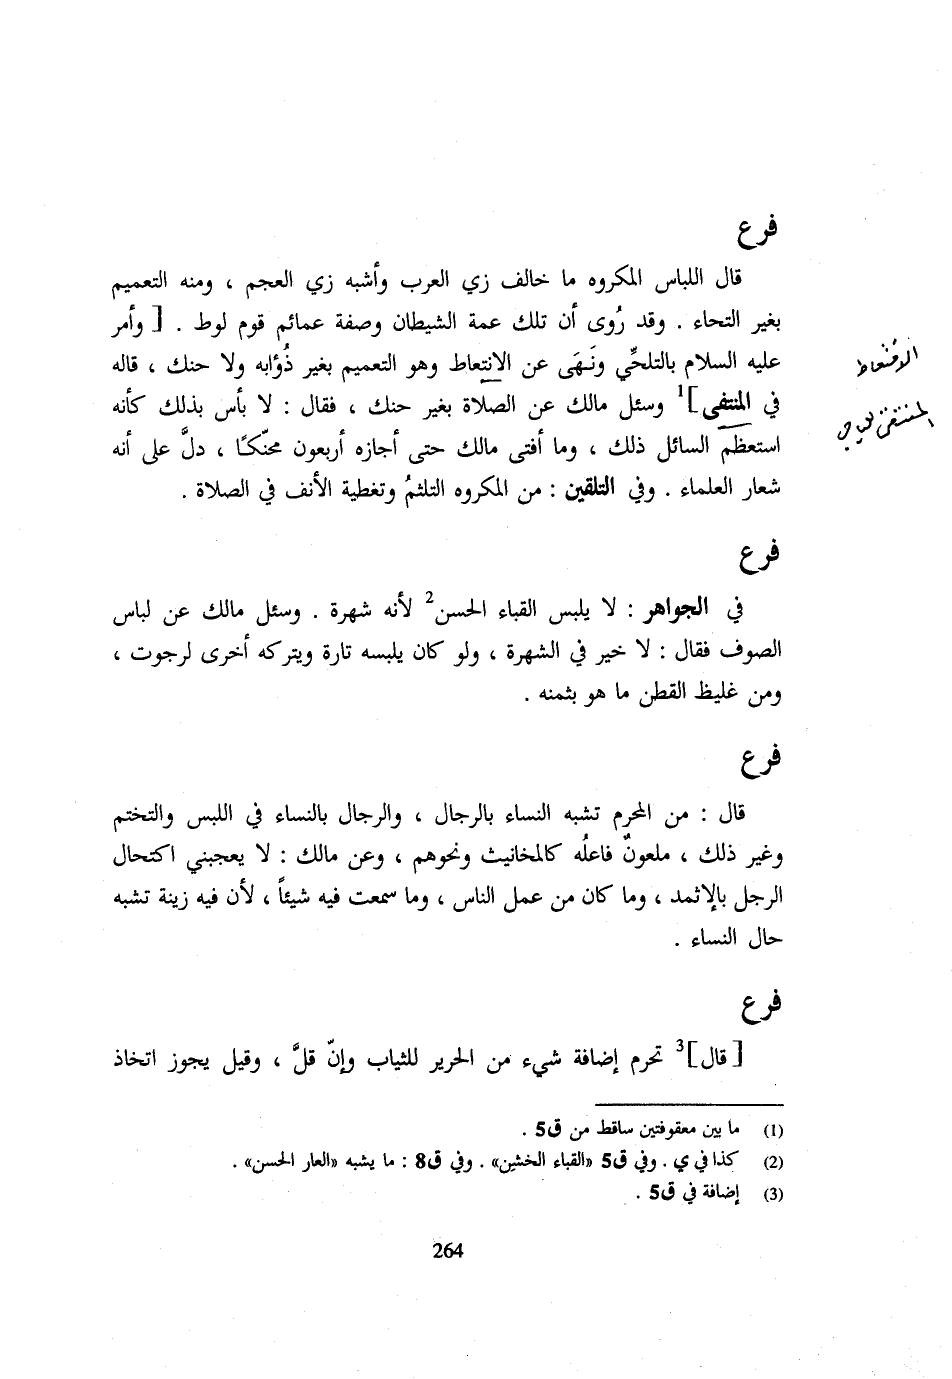 فرع
قال اللباس المكروه ما خالف زي العرب وأشبه زي العجم ، ومنه التعميم
بغير التحاء . وقد رُوى أن تلك عمة الشيطان وصفة عمائم قوم لوط . [ وأمر
عليه السلام بالتلحِّي ونَهَى عن الانتعاط وهو التعميم بغير ذُؤابه ولا حنك ، قاله
في المنتفى ]1 وسئل مالك عن الصلاة بغير حنك ، فقال : لا بأس بذلك كأنه
استعظم السائل ذلك ، وما أفتى مالك حتى أجازه أربعون محنّكًا ، دلَّ على أنه
شعار العلماء . وفي التلقين : من المكروه التلثمُ وتغطية الأنف في الصلاة .
الاقتعاط
المنتقى للباجي
فرع
في الجواهر : لا يلبس القباء الحسن2 لأنه شهرة . وسئل مالك عن لباس
الصوف فقال : لا خير في الشهرة ، ولو كان يلبسه تارة ويتركه أخرى لرجوت ،
ومن غليظ القطن ما هو بثمنه .
فرع
قال : من المحرم تشبه النساء بالرجال ، والرجال بالنساء في اللبس والتختم
وغير ذلك ، ملعونٌ فاعلُه كالمخانيث ونحوهم ، وعن مالك : لا يعجبني اكتحال
الرجل بالإثمد ، وما كان من عمل الناس ، وما سمعت فيه شيئاً ، لأن فيه زينة تشبه
حال النساء .
فرع
[ قال ]3 تحرم إضافة شيء من الحرير للثياب وإنّ قلَّ ، وقيل يجوز اتخاذ
(1) ما بين معقوفتين ساقط من ق5 .
(2) كذا في ي . وفي ق5 «القباء الخشين» . وفي ق8 : ما يشبه «العار الحسن» .
(3) إضافة في ق5 .
264